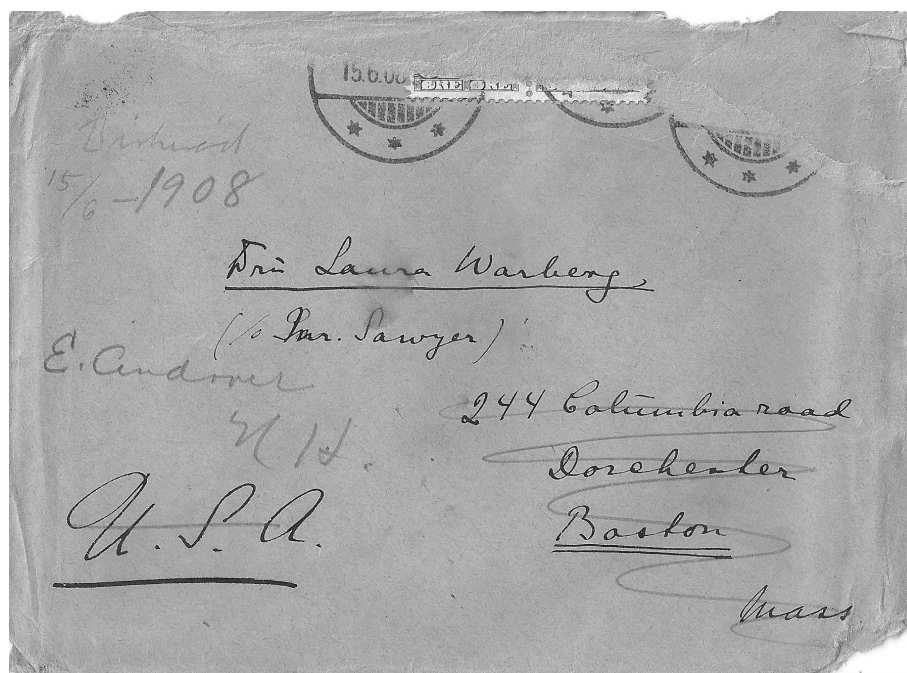 15.6.08
15/6 - 1908
Fru Laura Warberg
(c/o Mr. Sawyer)
E. Andover
N H.
244 Columbia road
Dorchester
Boston
Mass
U. S. A.